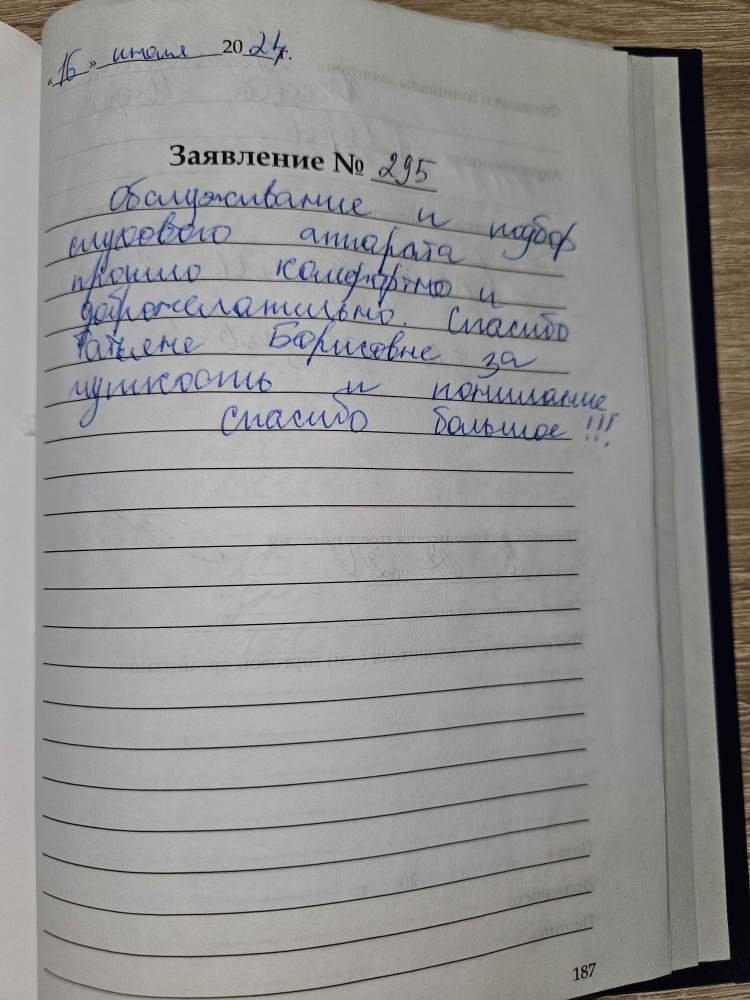 «16» июля 2024г.
Заявление № 295
Обслуживание и подбор
слухового аппарата
прошло комфортно и
доброжелательно. Спасибо
Татьяне Борисовне за
чуткость и понимание
Спасибо большое!!!
187